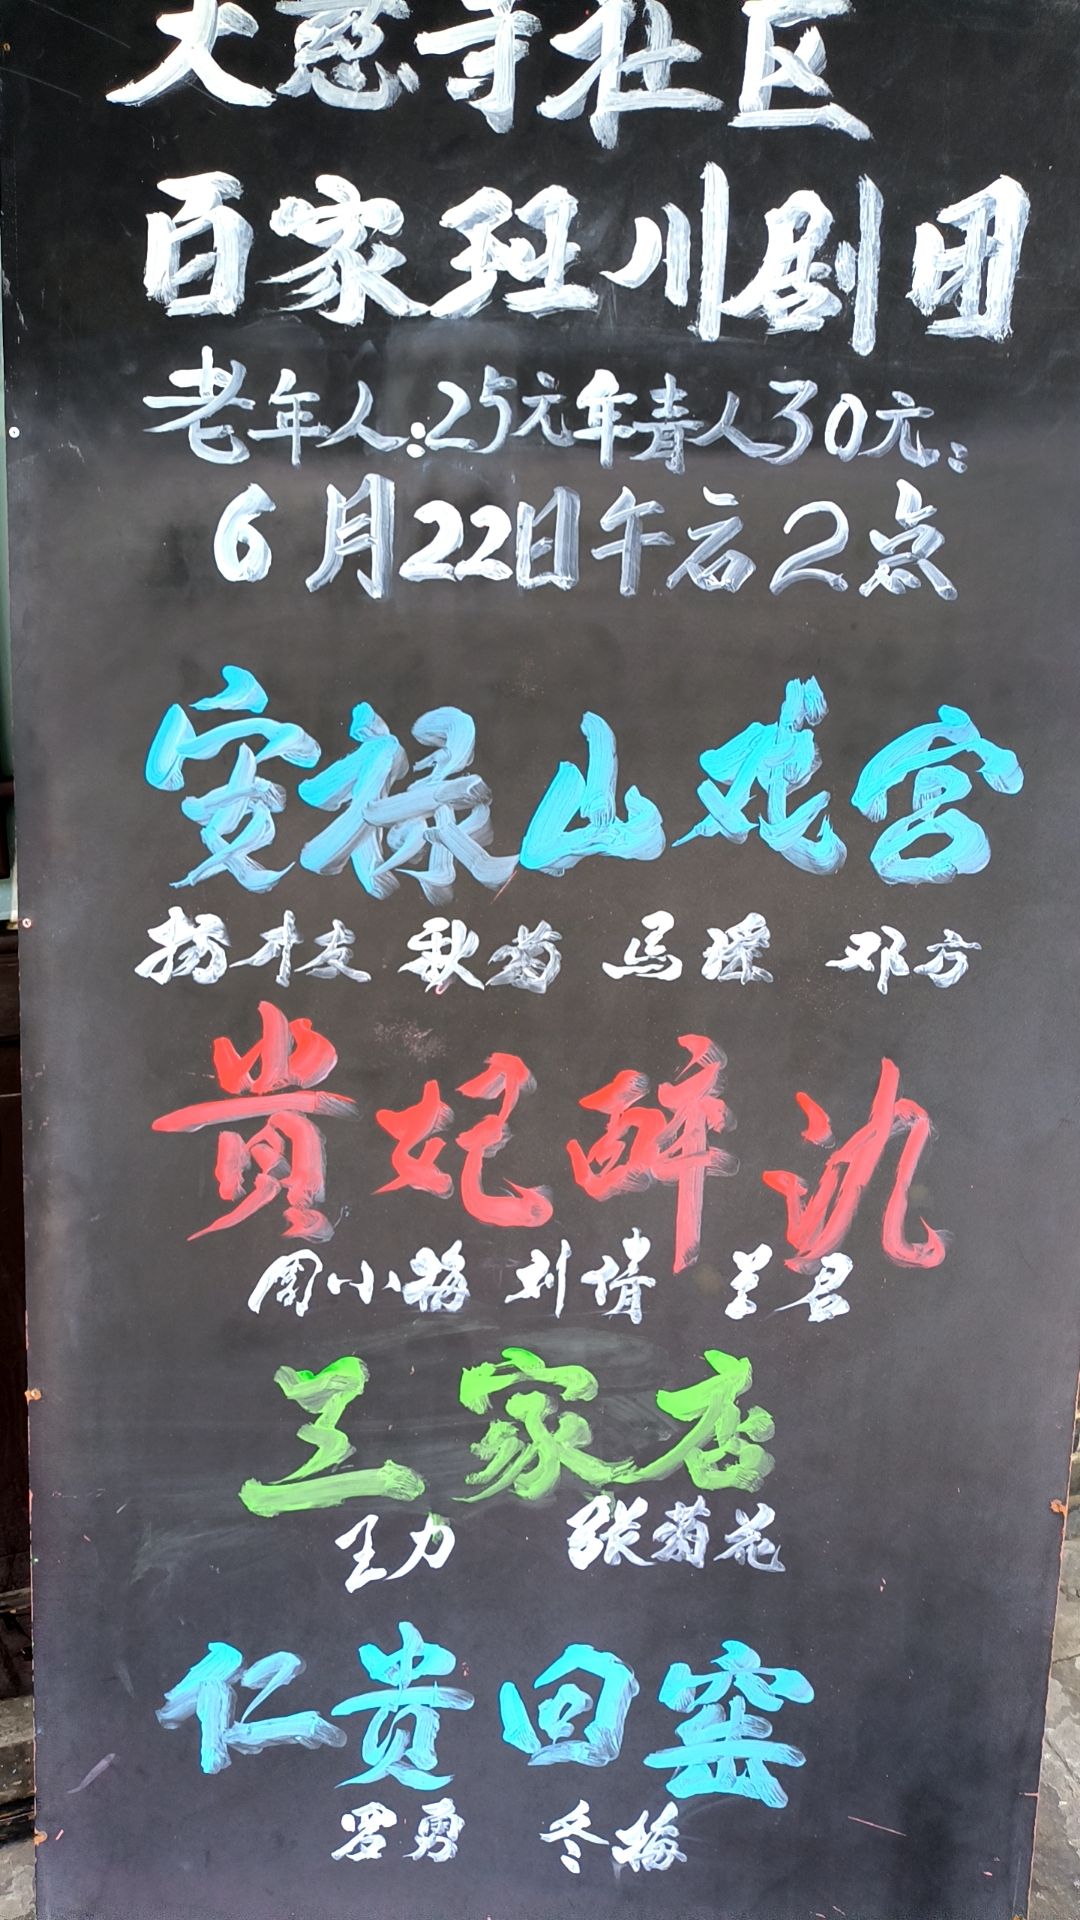 大慈寺社区
百家班川剧团
老年人:25元年青人30元:
6月22日午后2点
安禄山戏宫
扬升友 秋菊 马瑶 邓方
貴妃醉
周小梅 刘倩 兰君
三家店
王力 张菊花
仁贵回窑
罗勇 冬梅